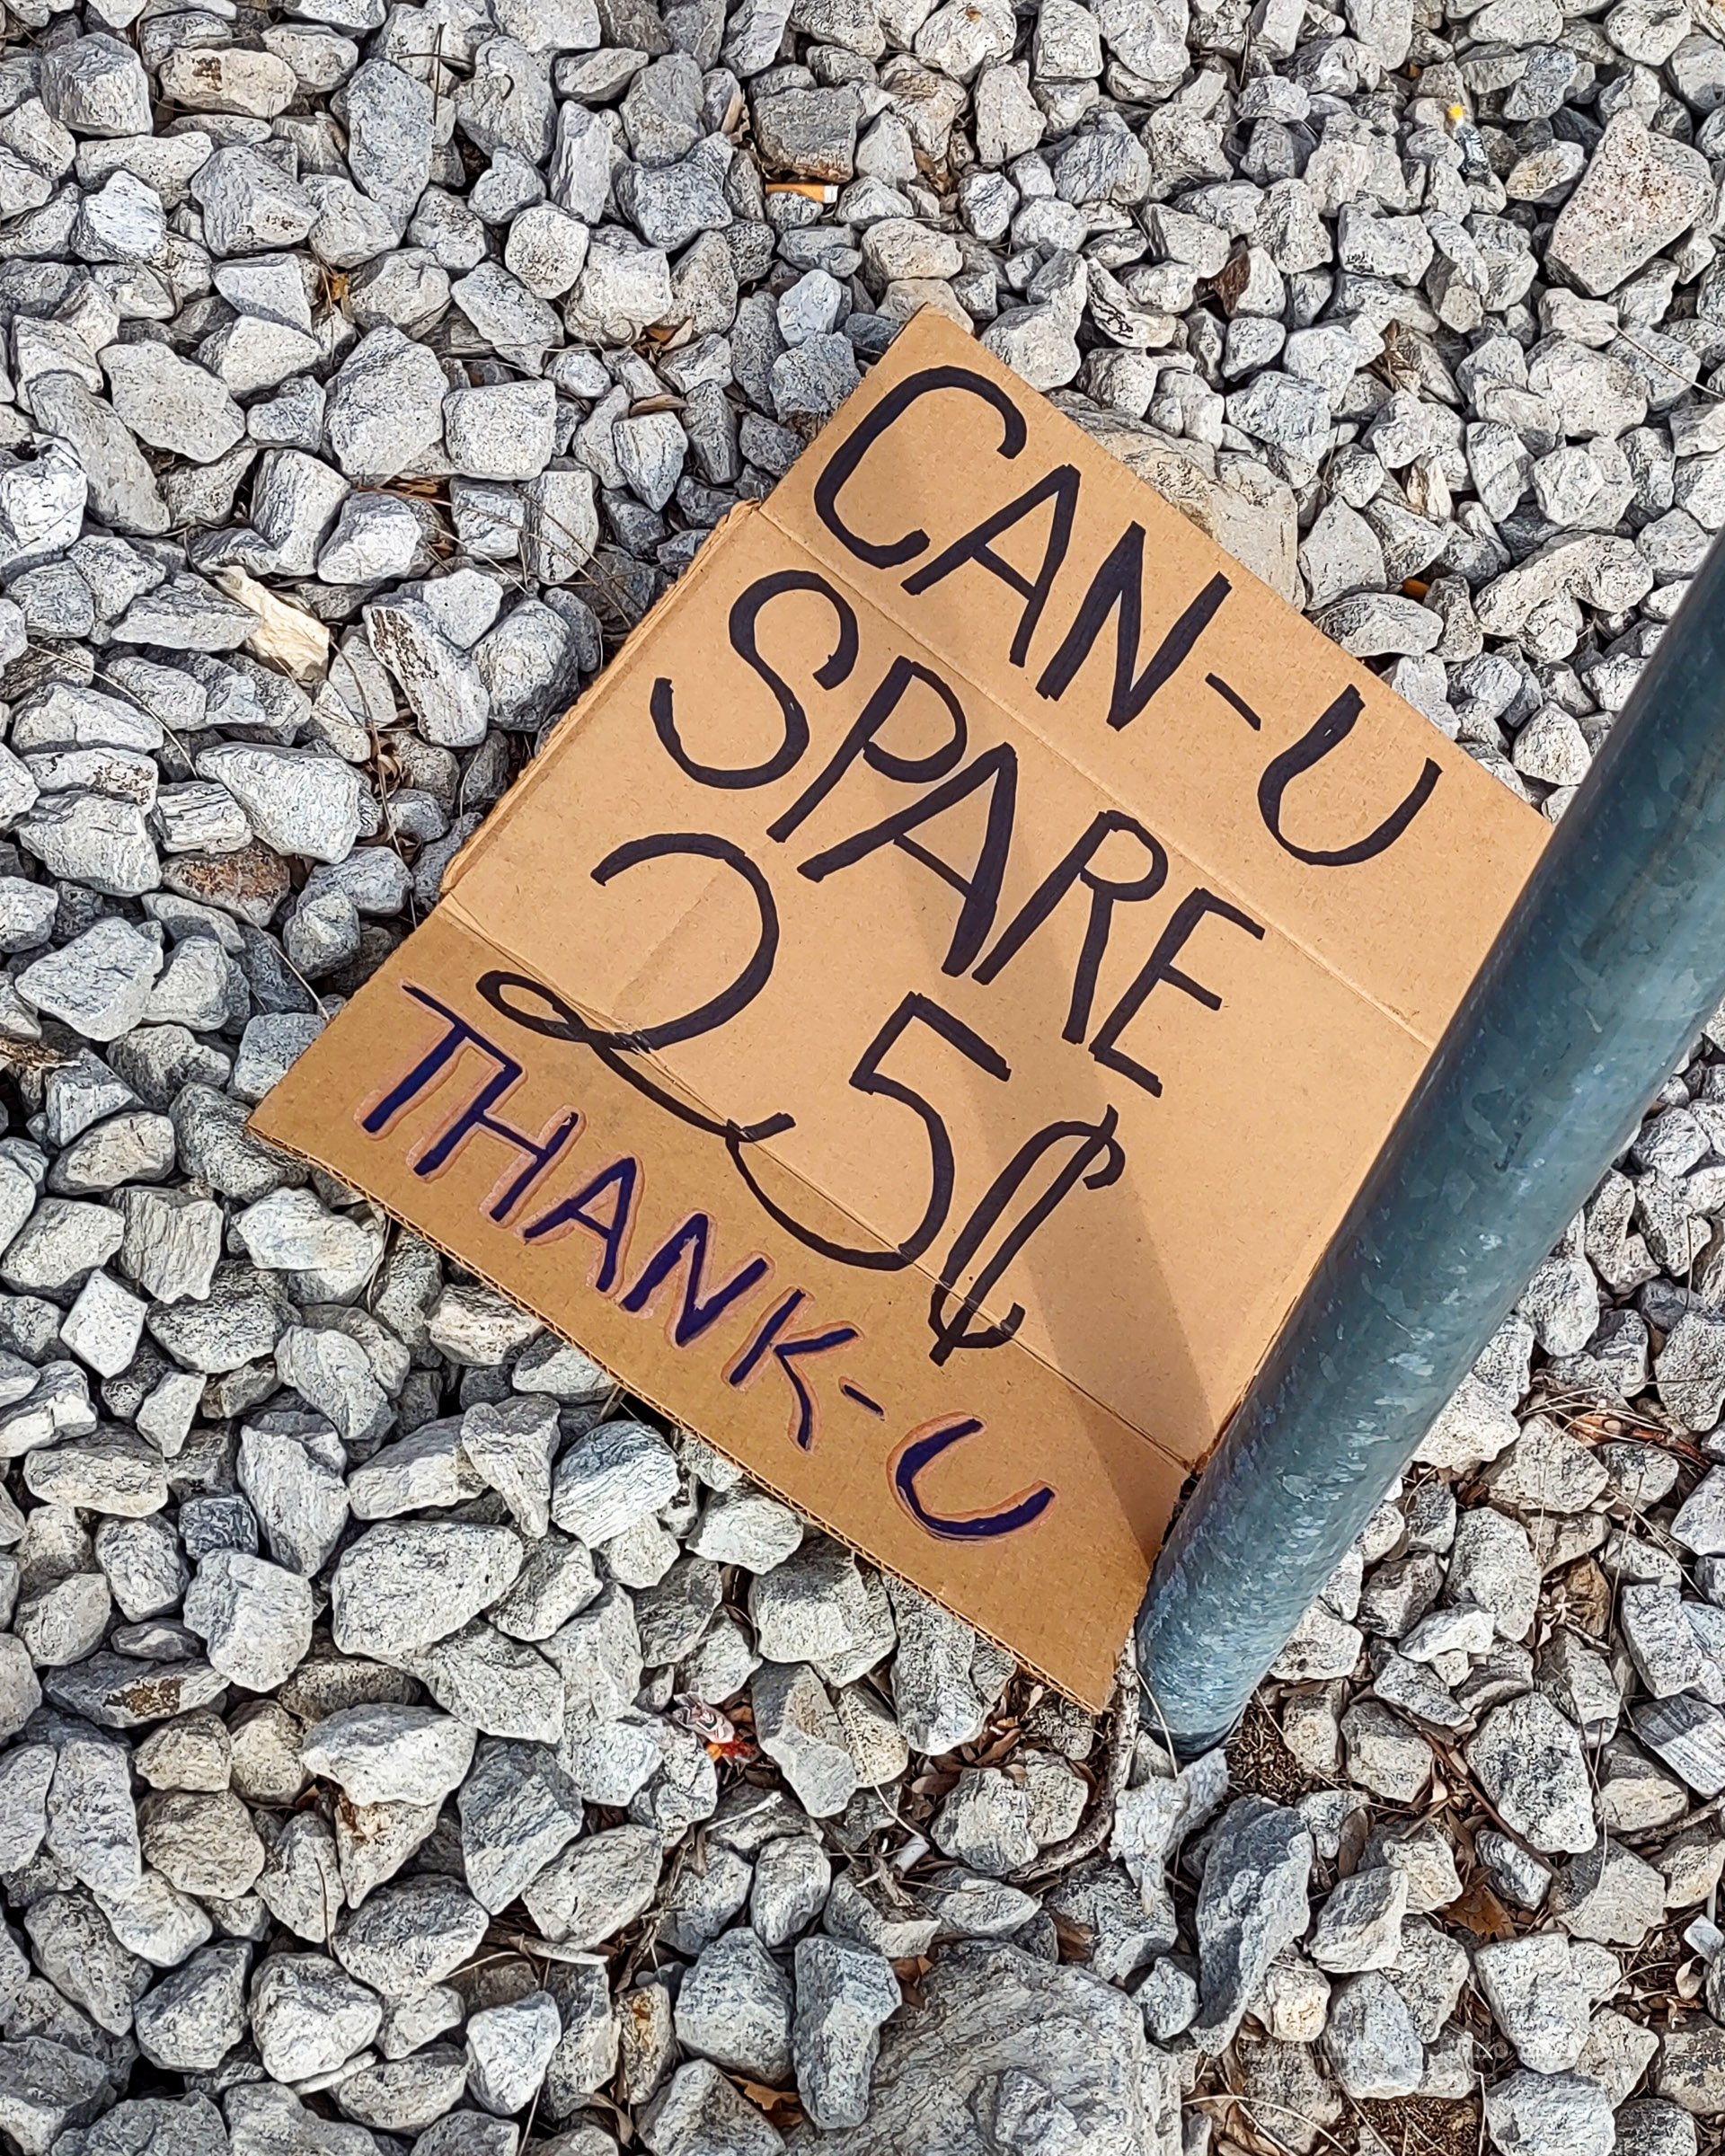 CAN-U
SPARE
25¢
THANK-U